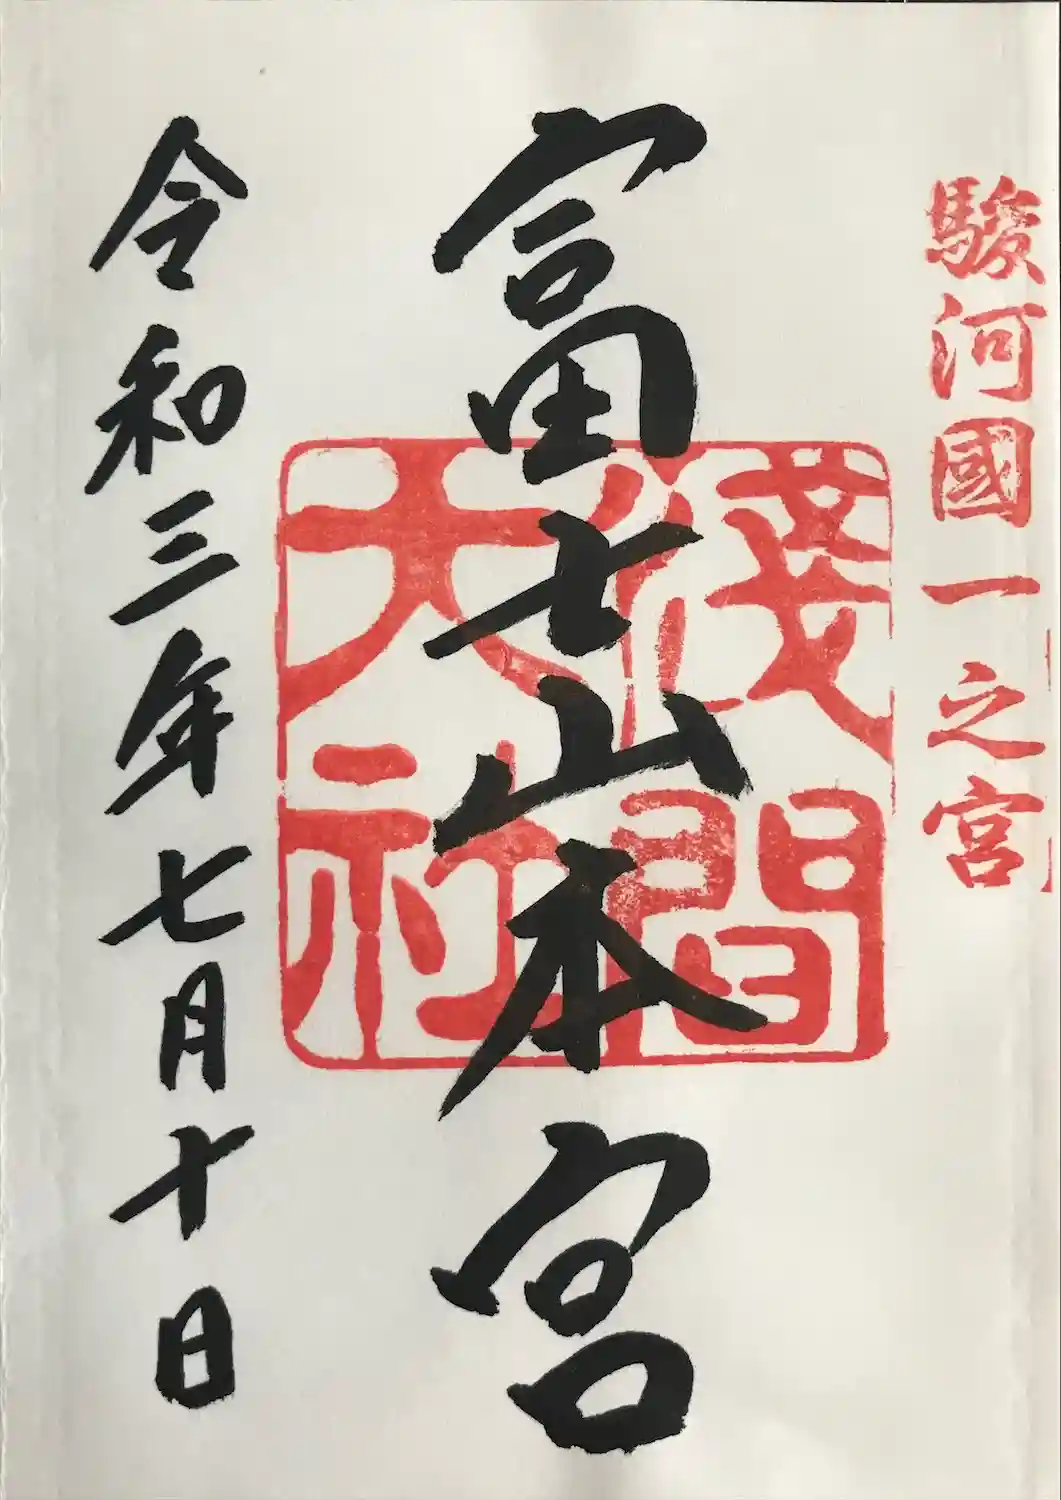 駿河國一之宮
富士山本宮
淺間大社
令和三年七月十日